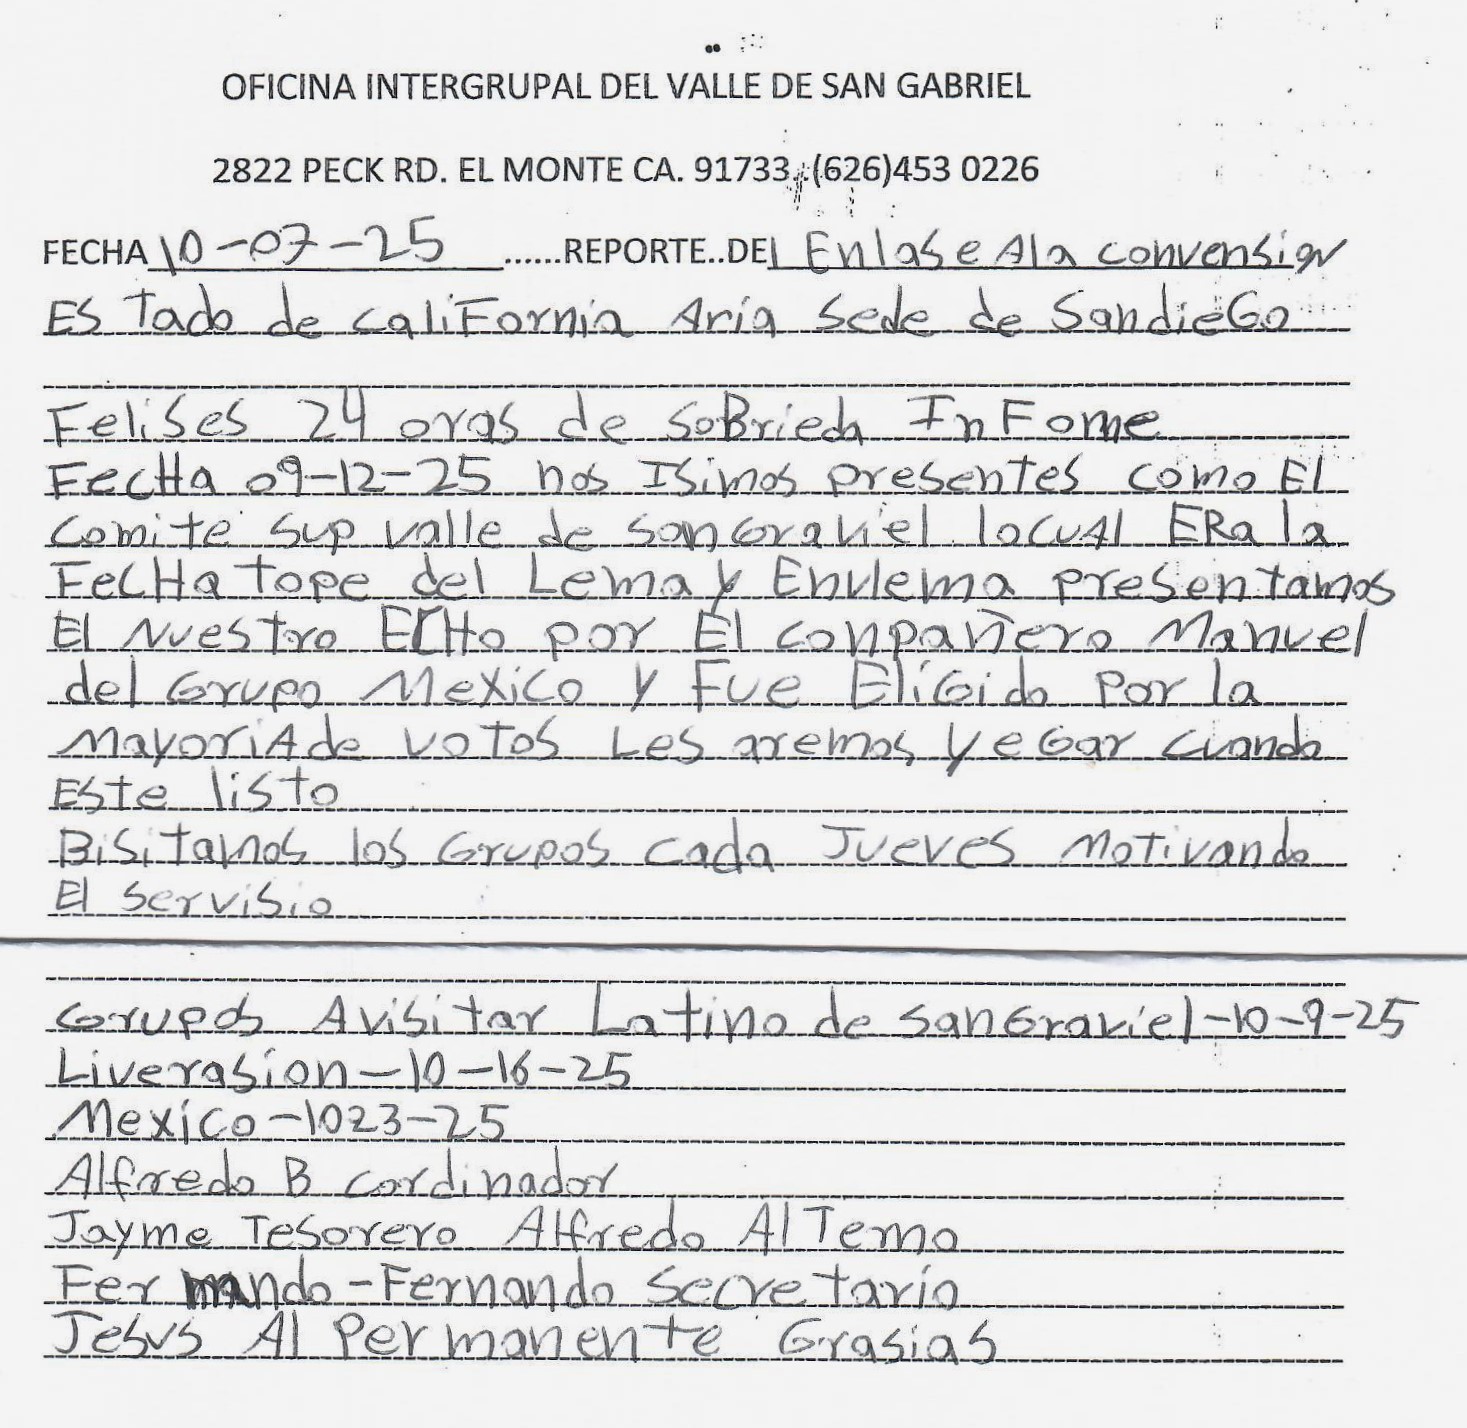 OFICINA INTERGRUPAL DEL VALLE DE SAN GABRIEL
2822 PECK RD. EL MONTE CA. 91733..(626)453 0226
FECHA 10-07-25 ......REPORTE..DEl Enlase Ala convension
ES Tado de caliFornia Aria Sede de SandieGo
Felises 24 oras de soBrieda InFome
FecHa 09-12-25 nos ISimos presentes como El
comite sup valle de sanGraviel locual ERa la
FecHa tope del Lema y Envlema presentamos
El Nuestro EcHo por El conpañero Manuel
del Grupo Mexico y Fue EliGido por la
MayoriA de votos Les aremos yeGar cuando
Este listo
BisiTamos los Grupos cada Jueves MoTivando
El servisio
Grupos Avisitar Latino de sanGraviel-10-9-25
Liverasion-10-16-25
Mexico-1023-25
Alfredo B cordinador
Jayme Tesorero Alfredo AlTerno
Fer nando-Fernando Secretario
Jesus Al Permanente Grasias